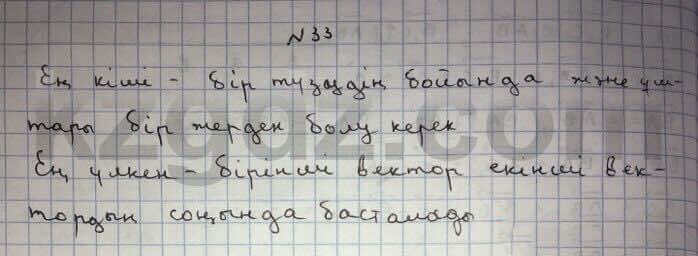 №33
Ең кіші - бір түзудің бойында және ұш-
тары бір жерден болу керек
Ең үлкен - бірінші вектор екінші век-
тордың соңында басталады
kzgdz.com